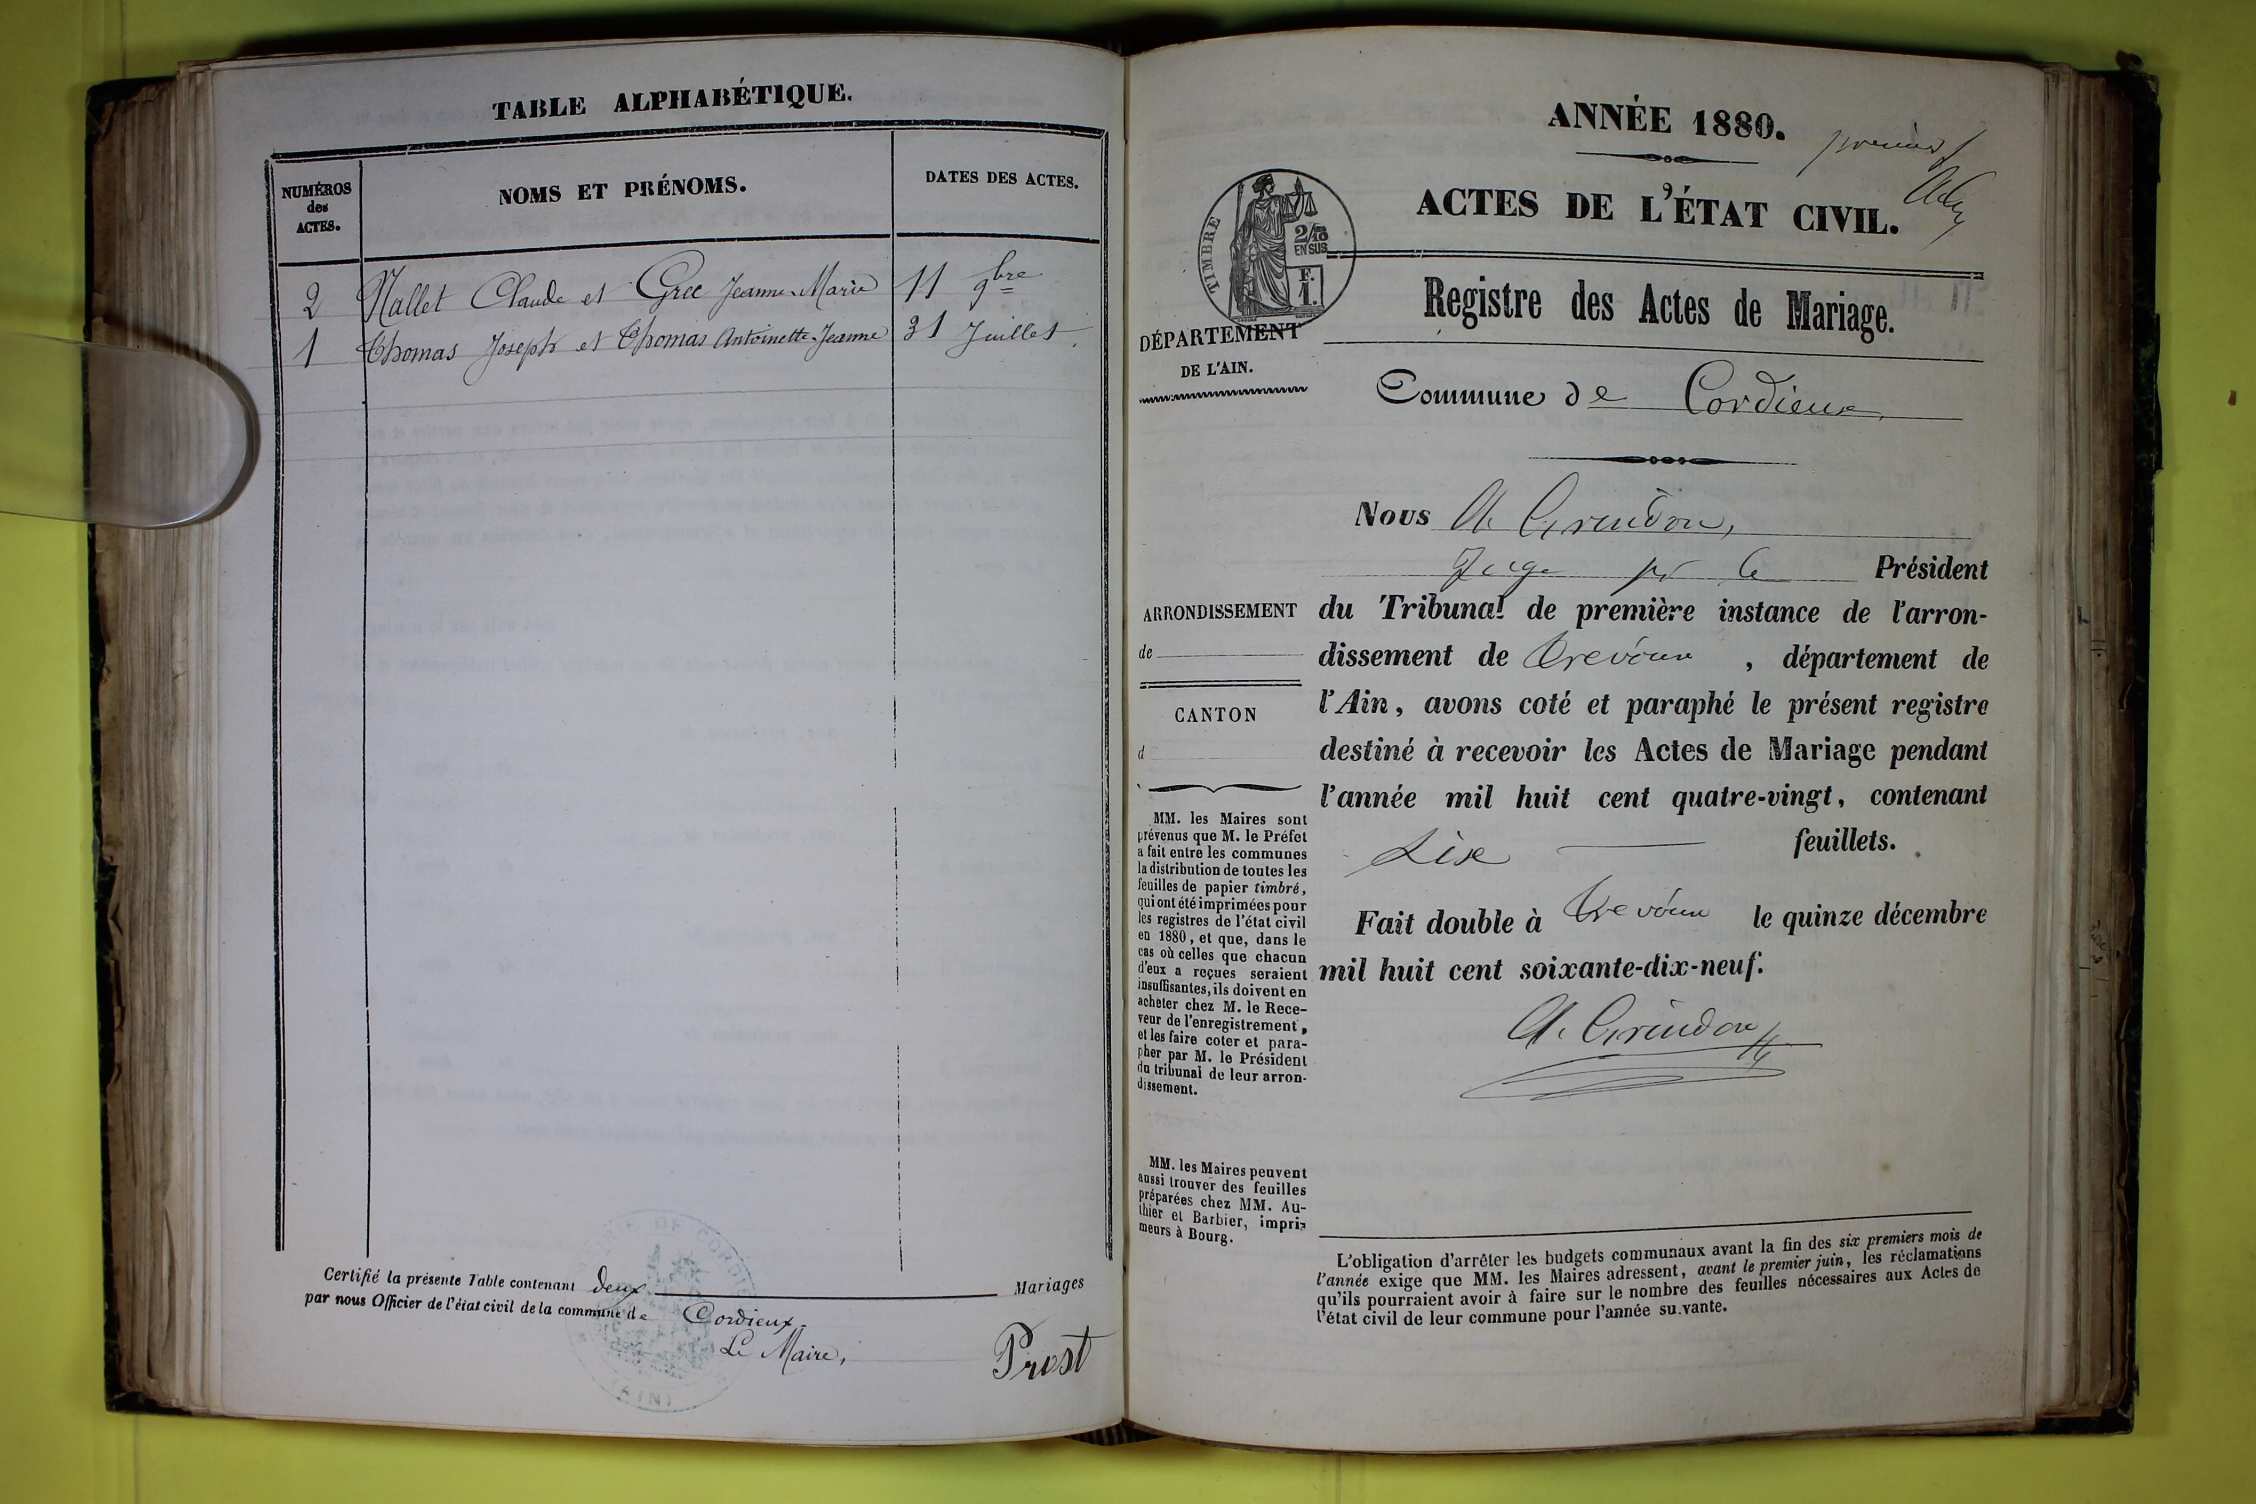 TABLE ALPHABÉTIQUE.
NUMÉROS
des
ACTES.
NOMS ET PRÉNOMS.
DATES DES ACTES.
2 Mallet Claude et Gree Jeanne-Marie 11 9bre
1 Thomas Joseph et Thomas Antoinette-Jeanne 31 Juillet.
Certifié la présente Table contenant deux Mariages
par nous Officier de l'état civil de la commune de Cordieux.
Le Maire,
Prost
ANNÉE 1880.
premier
ACTES DE L'ÉTAT CIVIL.
TIMBRE
2/10
EN SUS
F.
1.
Registre des Actes de Mariage.
DÉPARTEMENT
DE L'AIN.
Commune de Cordieux
Nous A. Grindon,
Juge pr le Président
ARRONDISSEMENT
de
CANTON
d
du Tribunal de première instance de l'arron-
dissement de Trévoux, département de
l'Ain, avons coté et paraphé le présent registre
destiné à recevoir les Actes de Mariage pendant
l'année mil huit cent quatre-vingt, contenant
Six feuillets.
Fait double à Trévoux le quinze décembre
mil huit cent soixante-dix-neuf.
A. Grindon
MM. les Maires sont
prévenus que M. le Préfet
a fait entre les communes
la distribution de toutes les
feuilles de papier timbré,
qui ont été imprimées pour
les registres de l'état civil
en 1880, et que, dans le
cas où celles que chacun
d'eux a reçues seraient
insuffisantes, ils doivent en
acheter chez M. le Rece-
veur de l'enregistrement,
et les faire coter et para-
pher par M. le Président
du tribunal de leur arron-
dissement.
MM. les Maires peuvent
aussi trouver des feuilles
préparées chez MM. Au-
thier et Barbier, impri-
meurs à Bourg.
L'obligation d'arrêter les budgets communaux avant la fin des six premiers mois de
l'année exige que MM. les Maires adressent, avant le premier juin, les réclamations
qu'ils pourraient avoir à faire sur le nombre des feuilles nécessaires aux Actes de
l'état civil de leur commune pour l'année suivante.